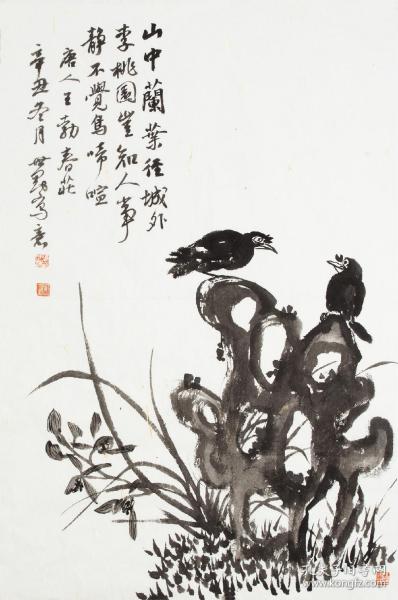 山中蘭葉徑城外
李桃園豈知人事
靜不覺鳥啼喧
唐人王勃春莊
辛丑冬月世勛寫意
孔夫子旧书网
www.kongfz.com